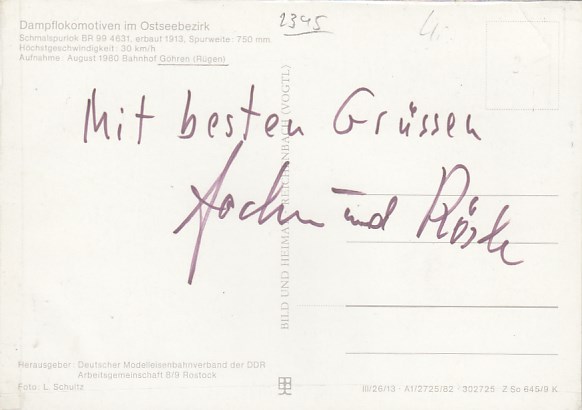 Dampflokomotiven im Ostseebezirk
Schmalspurlok BR 99 4631, erbaut 1913, Spurweite: 750 mm
Höchstgeschwindigkeit: 30 km/h
Aufnahme: August 1980 Bahnhof Göhren (Rügen)
2345
4,-
Mit besten Grüssen
Jochen und Rösle
BILD UND HEIMAT REICHENBACH (VOGTL)
Herausgeber: Deutscher Modelleisenbahnverband der DDR
Arbeitsgemeinschaft 8/9 Rostock
Foto: L. Schultz
III/26/13 · A1/2725/82 · 302725 · Z So 645/9 K